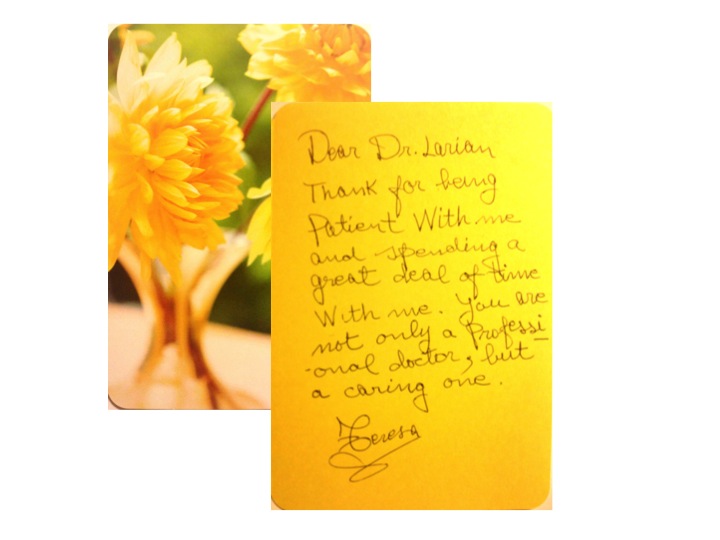 Dear Dr. Larian
Thank for being
Patient With me
and spending a
great deal of time
With me. You are
not only a Professi-
-onal doctor, but
a caring one.
Teresa